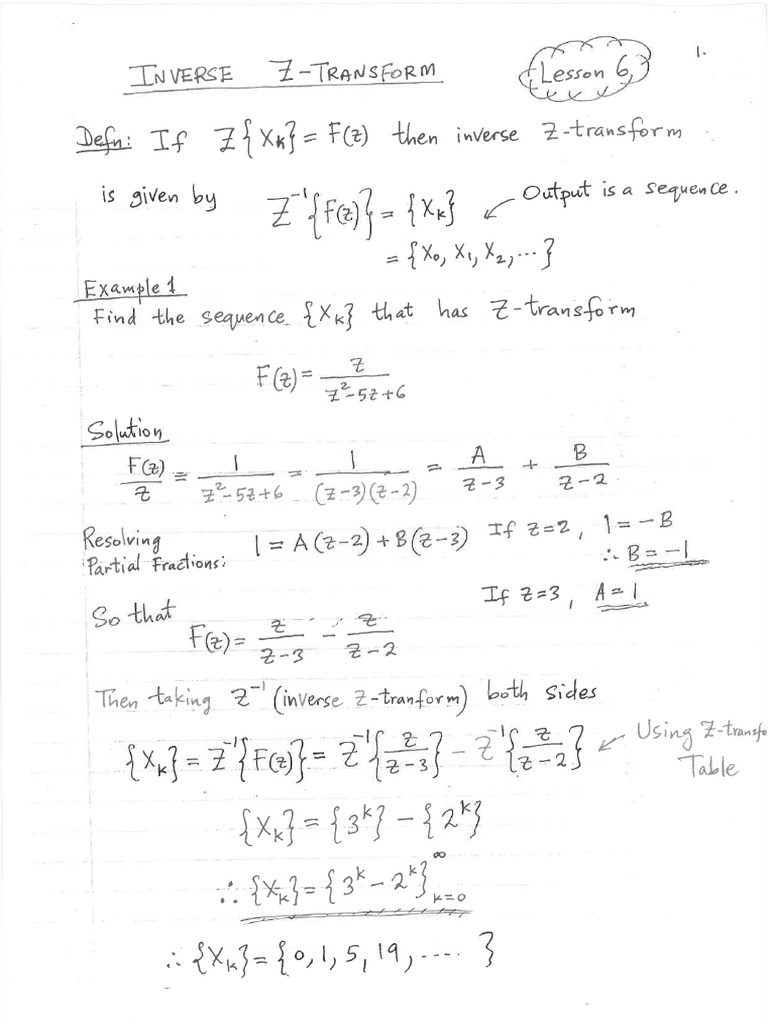 INVERSE Z-TRANSFORM
Lesson 6
1.
Defn: If Z{Xk} = F(z) then inverse Z-transform
is given by Z⁻¹{F(z)} = {Xk} ↙ Output is a sequence.
= {X₀, X₁, X₂, ...}
Example 1
Find the sequence {Xk} that has Z-transform
F(z) = z / (z²-5z+6)
Solution
F(z)/z = 1/(z²-5z+6) = 1/((z-3)(z-2)) = A/(z-3) + B/(z-2)
Resolving Partial Fractions: 1 = A(z-2) + B(z-3) If z=2, 1 = -B
∴ B = -1
If z=3, A = 1
So that
F(z) = z/(z-3) - z/(z-2)
Then taking Z⁻¹ (inverse Z-tranform) both sides
{Xk} = Z⁻¹{F(z)} = Z⁻¹{z/(z-3)} - Z⁻¹{z/(z-2)} ← Using Z-transfo
Table
{Xk} = {3ᵏ} - {2ᵏ}
∴ {Xk} = {3ᵏ - 2ᵏ}∞ k=0
∴ {Xk} = {0, 1, 5, 19, .... }